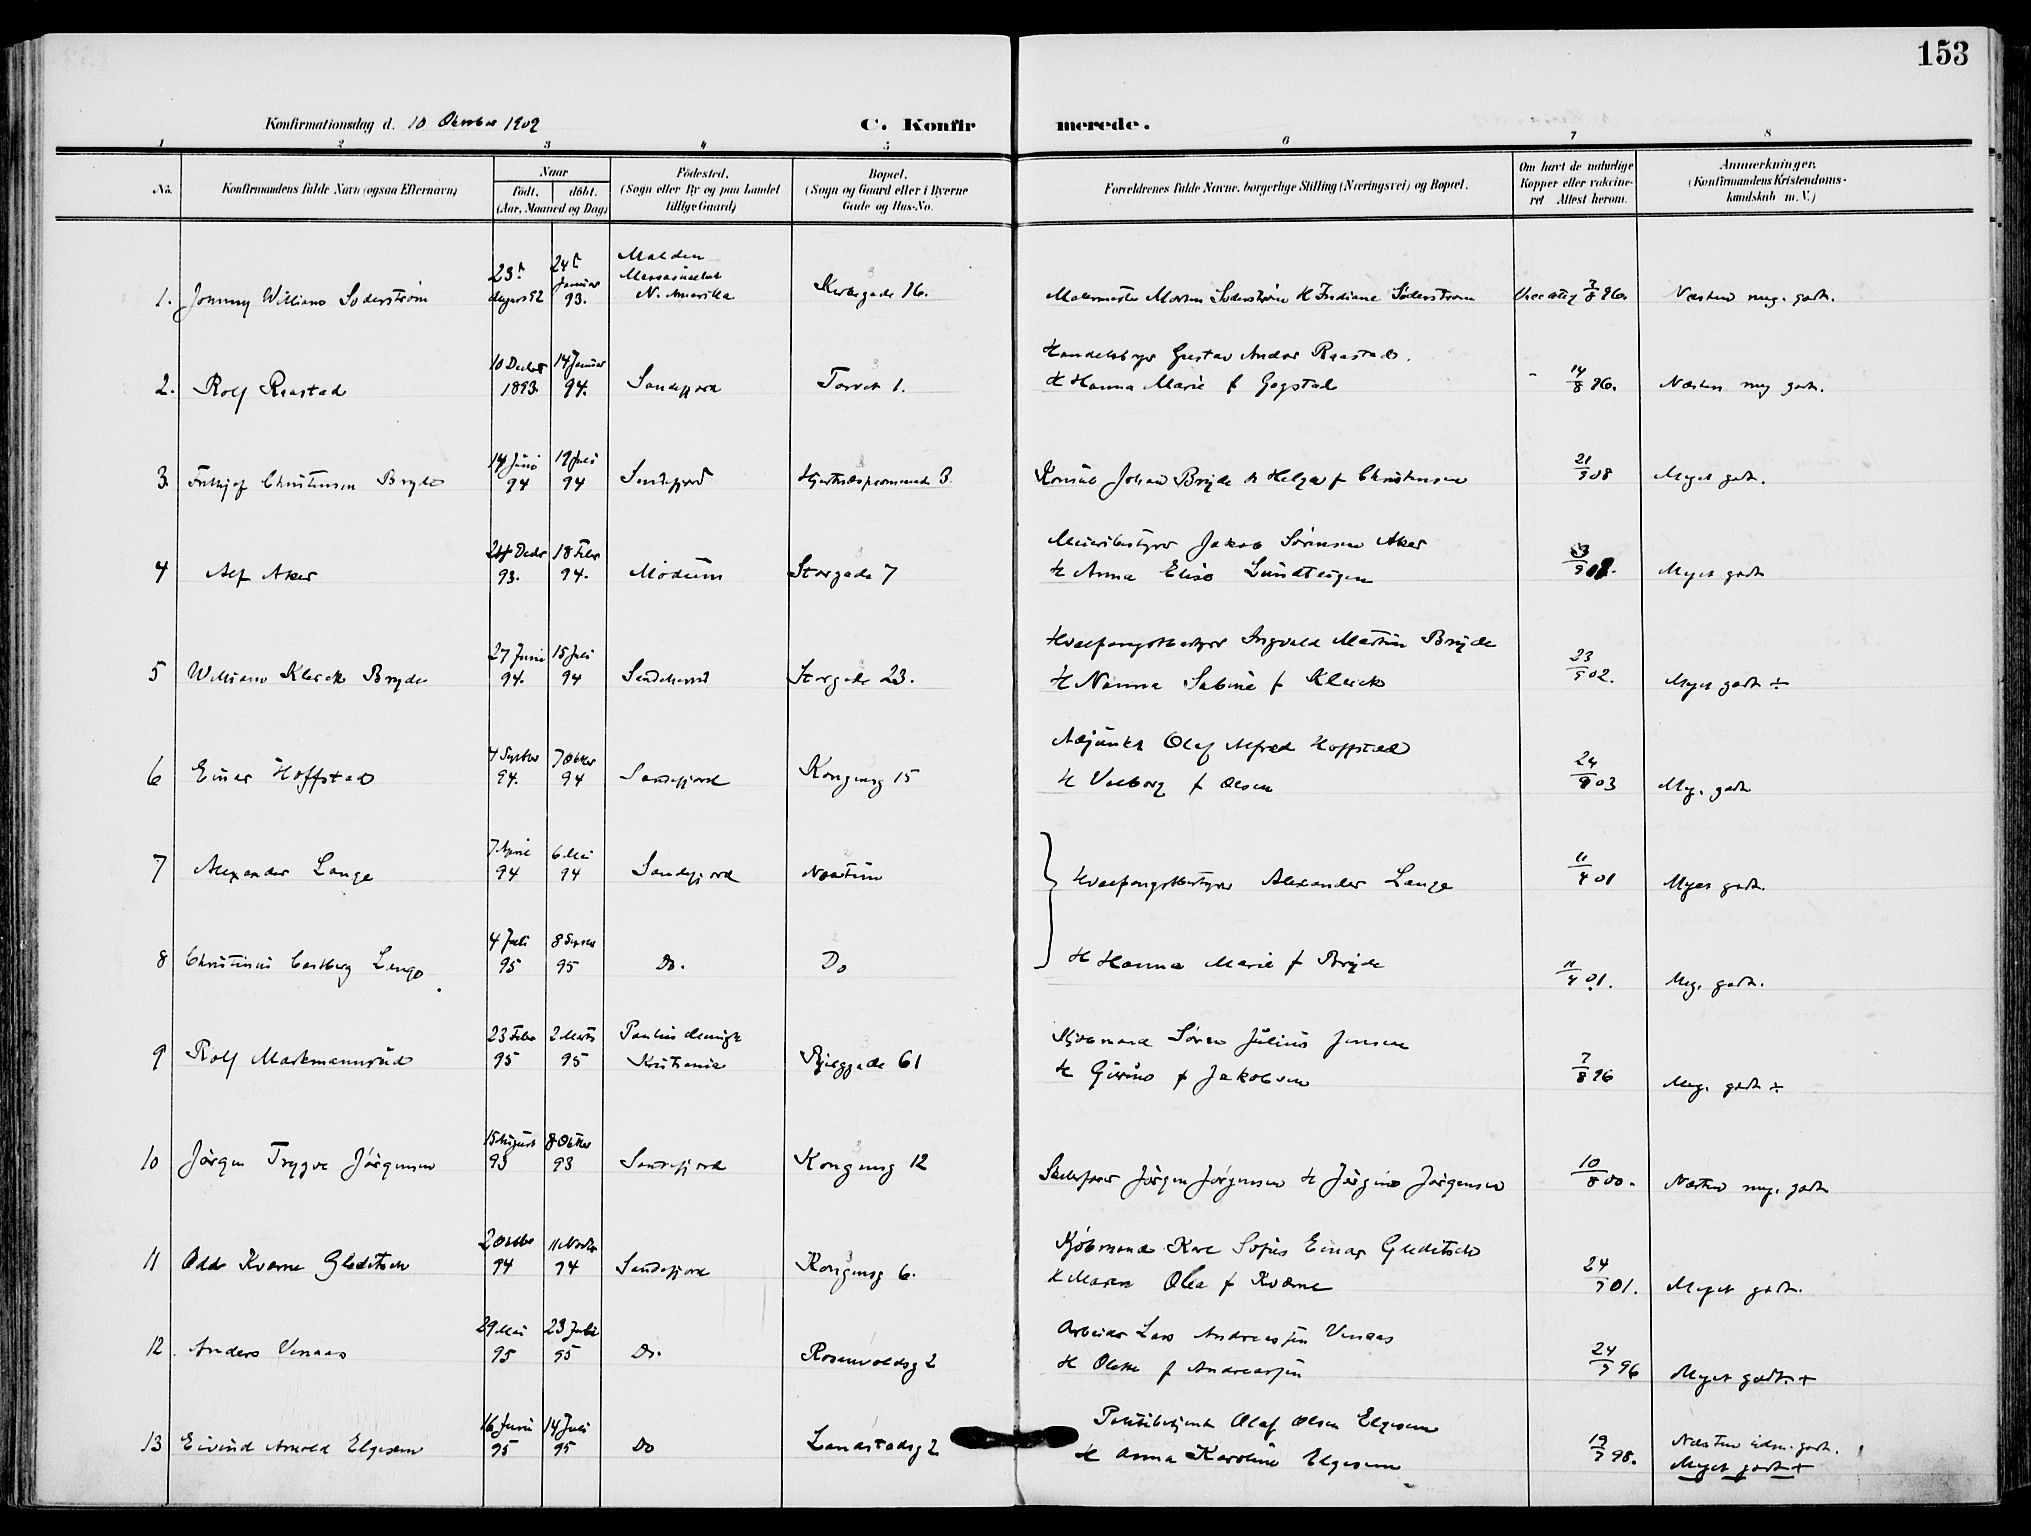 153
Konfirmationsdag d. 10 Oktober 1909
C. Konfirmerede.
1 2 3 4 5 6 7 8
No.
Konfirmandens fulde Navn (ogsaa Efternavn)
Naar
født. døbt.
(Aar, Maaned og Dag)
Fødested.
(Sogn eller By og paa Landet
tillige Gaard)
Bopæl.
(Sogn og Gaard eller i Byerne
Gade og Hus-No.
Forældrenes fulde Navne, borgerlige Stilling (Næringsvei) og Bopæl.
Om havt de naturlige
Kopper eller vakcine-
ret Attest herom.
Anmærkninger.
(Konfirmandens Kristendoms-
kundskab m. V.)
1. Johnny William Søderstrøm 23 92 24 Januar 93. Malden N. Amerika Kirkegade 16. Malermester Morten Søderstrøm & Indiana Söderstrøm 7/8 96. Næsten meg. godt.
2. Rolf Raastad 10 Decbr 1893. 14 Januar 94. Sandefjord Torvet 1. Handelsbgr Gustav Andor Raastad.
& Hanna Marie f Gogstad 14/8 96. Næsten meg godt.
3. Fridtjof Christensen Bryde 14 Juni 94 19 Juli 94 Sandefjord Hjertnæspromenade 3. Konsul Johan Bryde & Helga f Christensen 21/9 08 Meget godt.
4 Alf Aker 24 Decbr 93. 18 Febr 94. Modum Storgade 7 Meieribestyrer Jakob Sørensen Aker
& Anna Elise Lundteigen 9 08. Meget godt
5 William Klerck Bryde 27 Juni 94. 15 Juli 94 Sandeherred Storgade 23. Hvalfangstbestyrer Ingvald Martin Bryde
& Nanna Sabine f Klerck 23/9 02. Meget godt ÷
6 Einar Hoffstad 4 Septbr 94. 7 Oktbr 94 Sandefjord Kongensg 15 Adjunkt Olaf Alfred Hoffstad
& Valborg f Olsen 24/9 03 Meg. godt
7 Alexander Lange 7 April 94 6 Mai 94 Sandefjord Hvalfangstbestyrer Alexander Lange 11/4 01 Meget godt.
8 Christinus Castberg Lange 4 Juli 95 8 Septbr 95 Do. Do & Hanna Marie f Bryde 11/4 01. Meg. godt.
9 Rolf Markmannrud 23 Febr 95 2 Marts 95 Paulus menigh Kristiania Bjerggade 61 Søren Julius Jensen
& f Jakobsen 7/8 96 Meg. godt ÷
10 Jørgen Trygve Jørgensen 15 August 93 8 Oktbr 93 Sandefjord Kongensg 12 Skibsfører Jørgen Jørgensen & Jørgine Jørgensen 10/8 00. Næsten meg. godt
11 Odd Kværne Gleditsch 2 Oktbr 94 11 Novbr 94 Sandefjord Kongensg 6. Kjøbmand Karl Sofus Einar Gleditsch
& Maren Olea f Kværne 24/9 01. Meget godt.
12 Anders Venaas 29 Mai 95 23 Juli 95 Do. Rosenvoldsg 2 Arbeider Lars Andreassen Venaas
& f Andreassen 24/9 96 Meget godt. +
13 Eivind Arnold Elgesem 16 Juni 95 14 Juli 95 Do Landstadsg 2 Politibetjent Olaf Olsen Elgesem
& Anna Karoline Elgesem 19/9 98. Næsten godt.
Meget godt +